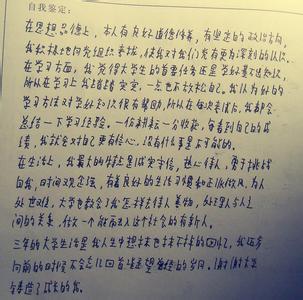 自我鉴定:
在思想品德上,本人有良好道德修养,有坚定的政治方向,
我积极地向党组织靠拢,使我对我们党有更为深刻的认识。
在学习方面,我觉得大学生的首要任务还是学好专业知识,
所以在学习上我踏踏实实,一点也不放松自己。我认为好的
学习方法对学好知识很有帮助,所以在每次考试后,我都会
总结一下学习经验。一份耕耘一分收获,每看到自己的成
绩,我就会对自己更有信心,没有什么事是不可能的。
在生活上,我最大的特点是诚实守信,热心待人,勇于挑战
自我,时间观念强,有着良好的生活习惯和正派作风。为人
处世
大学也教会了我怎样去待人美物,处理人与人之
间的关系,做一个能融入这个社会的有新人。
三年的大学生活是我人生中想抹也抹不掉的回忆,我迈步
向前的时候不会忘记回首凝望曾经的岁月。谢谢大学
生
造了成长的我。